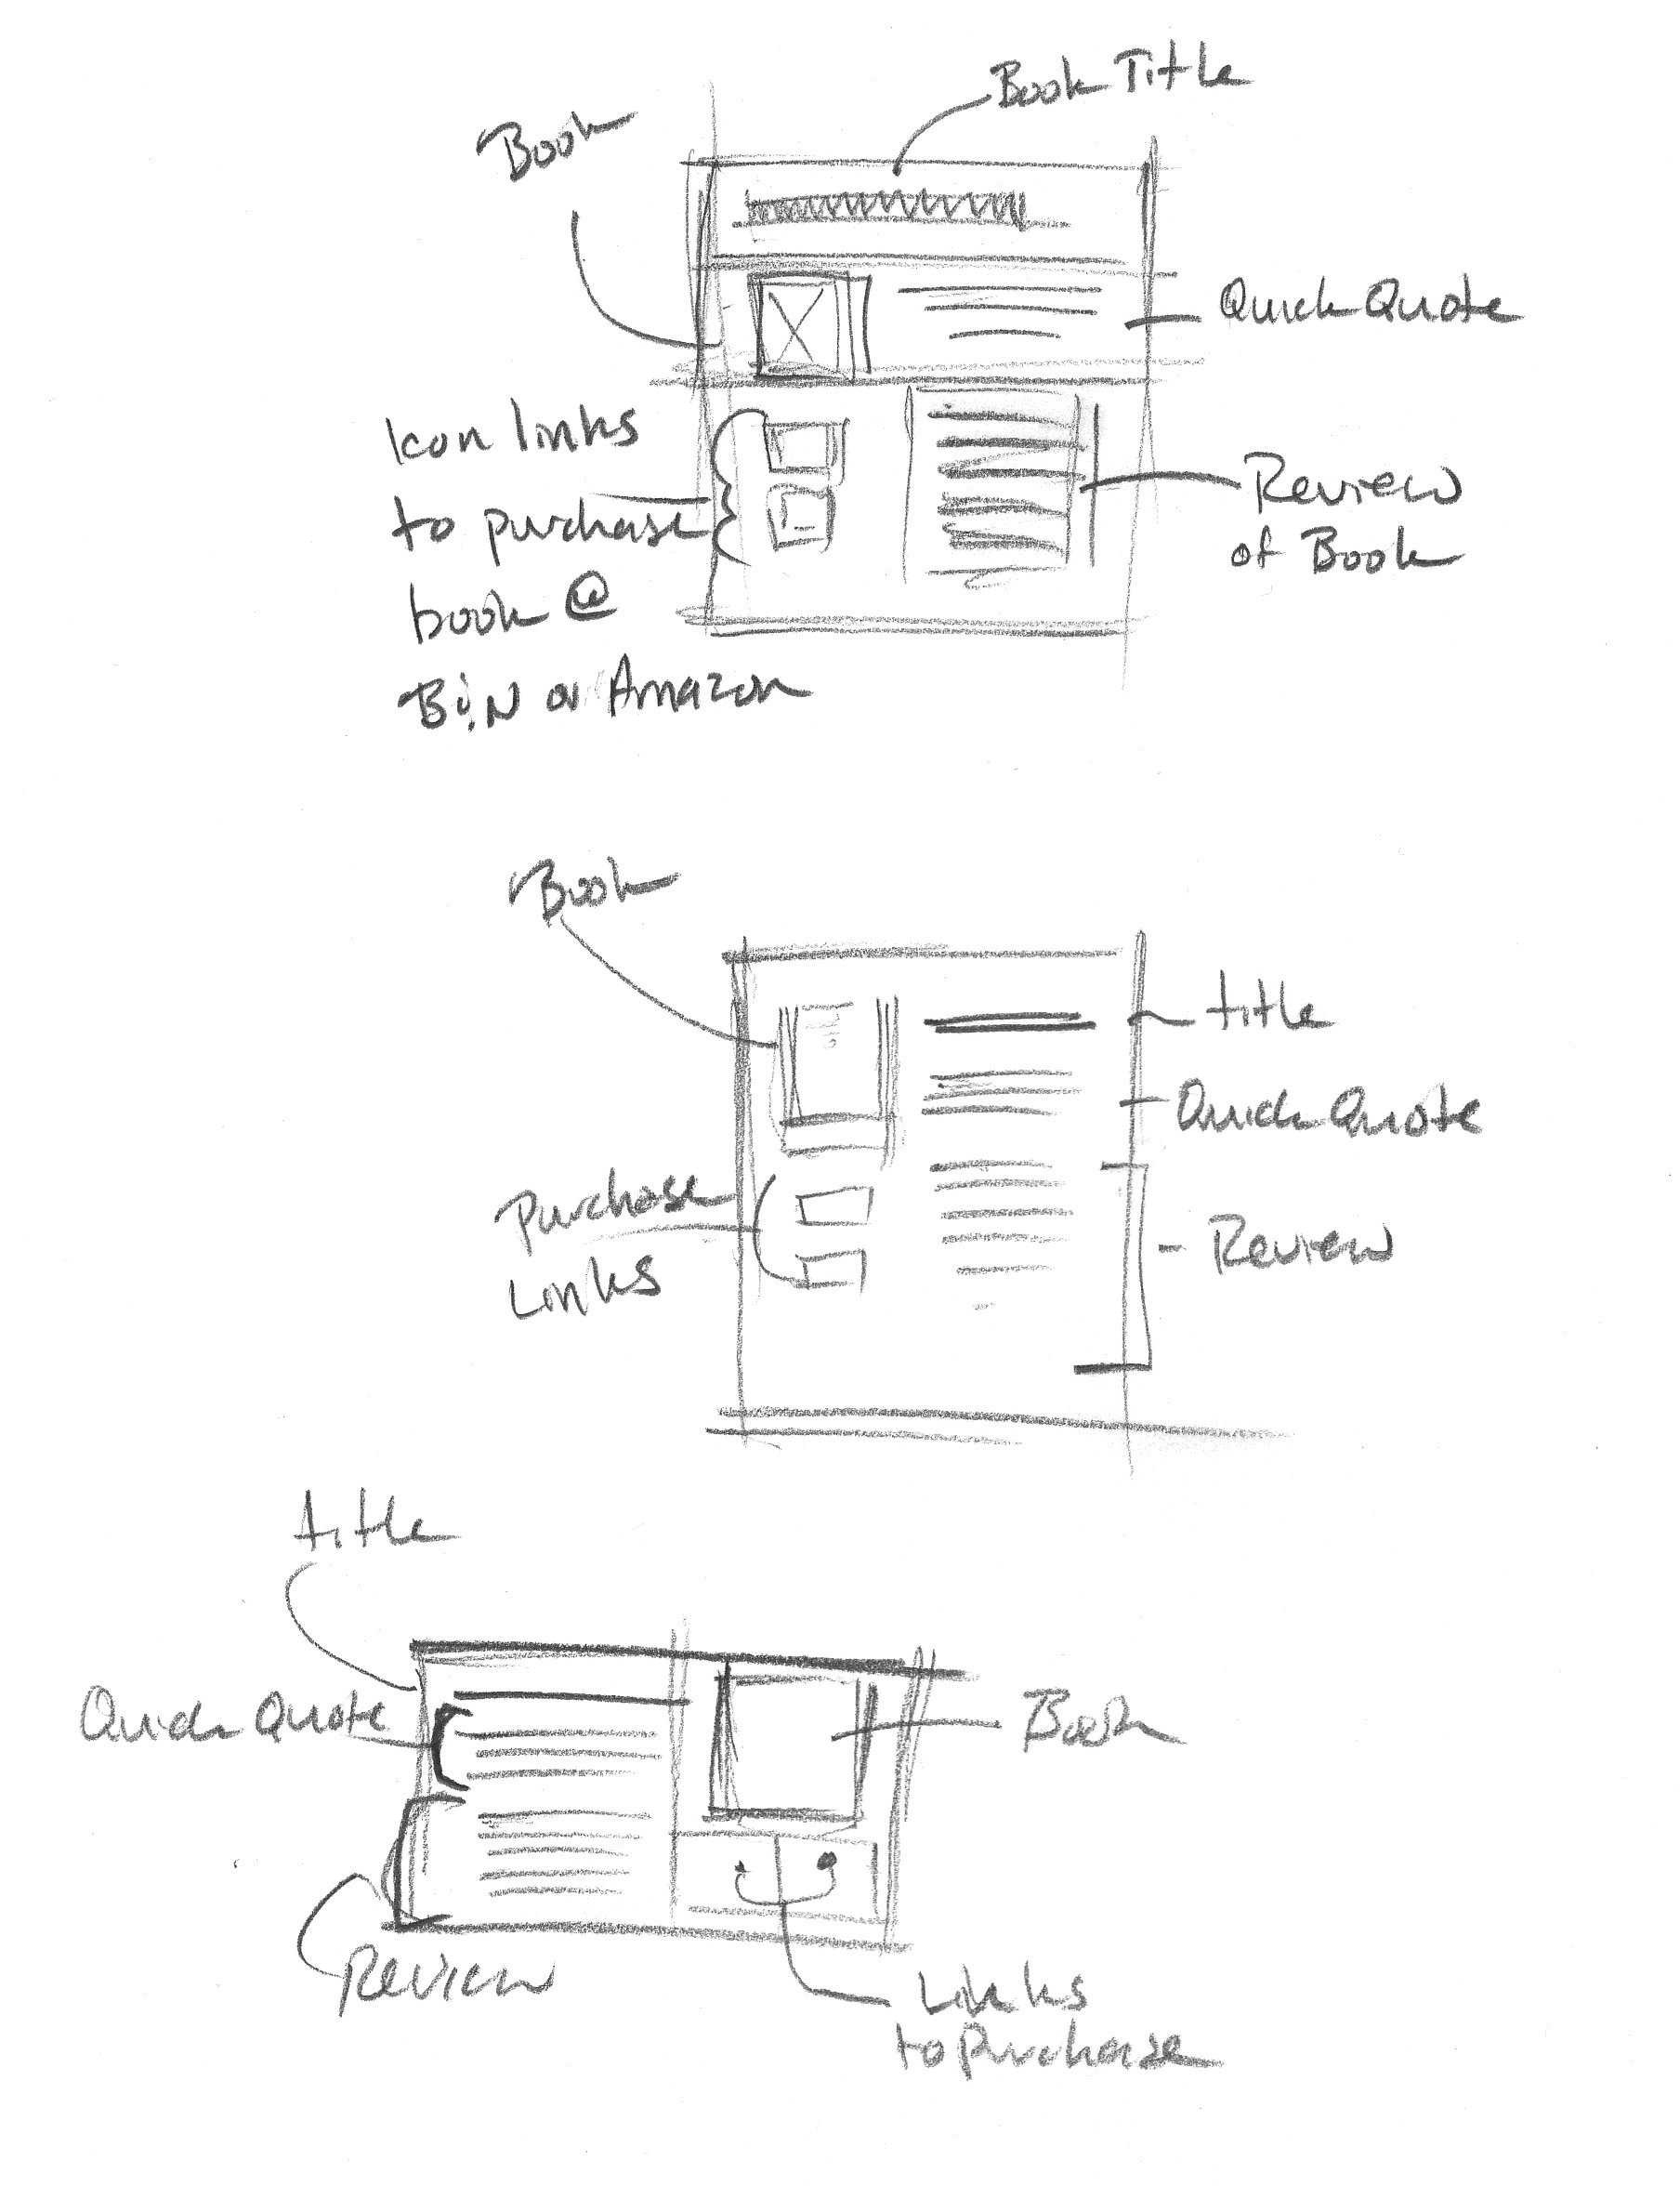 Book Title
Book
Quick Quote
Icon links
to purchase
book @
B&N or Amazon
Review
of Book
Book
title
Quick Quote
Purchase
Links
Review
title
Quick Quote
Book
Review
Links
to Purchase